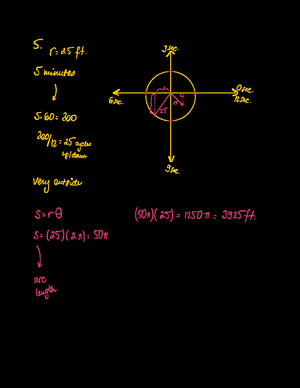 5. r = 25 ft.
5 minutes
5·60 = 300
300/12 = 25 cycles
up/down
Very outside
3 sec.
6 sec.
0 sec.
12 sec.
9 sec.
25
S = rθ
S = (25)(2π) = 50π
arc
length
(50π)(25) = 1250π = 3925 ft.